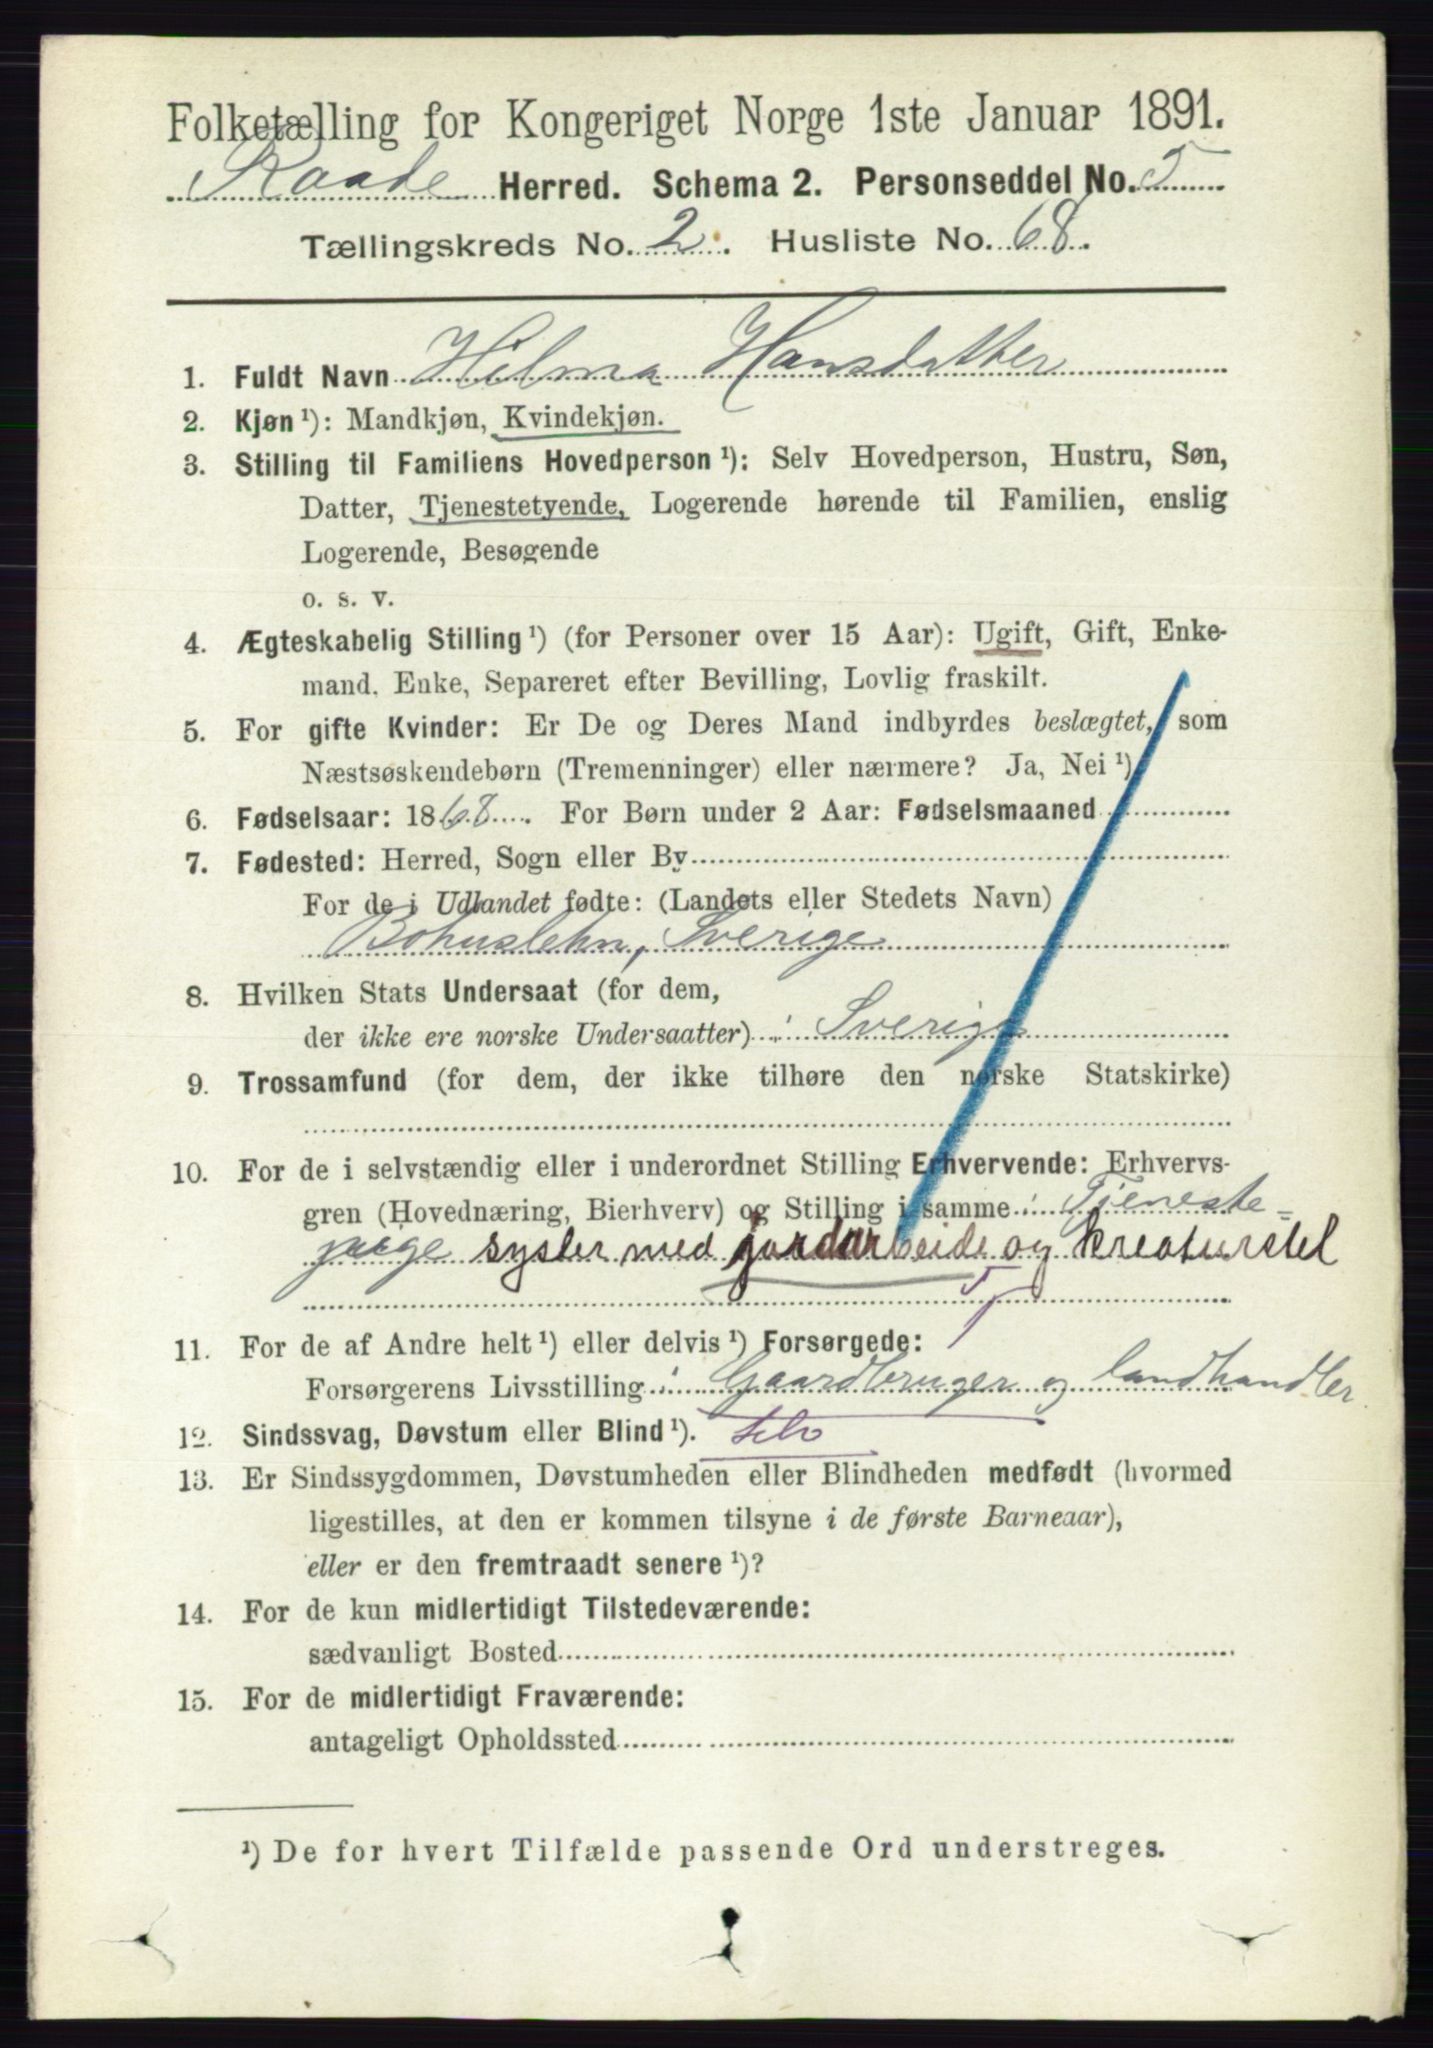 Folketælling for Kongeriget Norge 1ste Januar 1891.
Raade Herred. Schema 2. Personseddel No. 5
Tællingskreds No. 2. Husliste No. 68.
1. Fuldt Navn Hilma Hansdatter
2. Kjøn ¹): Mandkjøn, Kvindekjøn.
3. Stilling til Familiens Hovedperson ¹): Selv Hovedperson, Hustru, Søn,
Datter, Tjenestetyende, Logerende hørende til Familien, enslig
Logerende, Besøgende
o. s. v.
4. Ægteskabelig Stilling ¹) (for Personer over 15 Aar): Ugift, Gift, Enke-
mand, Enke, Separeret efter Bevilling, Lovlig fraskilt.
5. For gifte Kvinder: Er De og Deres Mand indbyrdes beslægtet, som
Næstsøskendebørn (Tremenninger) eller nærmere? Ja, Nei ¹)
6. Fødselsaar: 1868. For Børn under 2 Aar: Fødselsmaaned
7. Fødested: Herred, Sogn eller By
For de i Udlandet fødte: (Landets eller Stedets Navn)
Bohuslehn, Sverige
8. Hvilken Stats Undersaat (for dem,
der ikke ere norske Undersaatter): Sverige
9. Trossamfund (for dem, der ikke tilhøre den norske Statskirke)
10. For de i selvstændig eller i underordnet Stilling Erhvervende: Erhvervs-
gren (Hovednæring, Bierhverv) og Stilling i samme: Tjeneste=
pige sysler med jordarbeide og kreaturstel
11. For de af Andre helt ¹) eller delvis ¹) Forsørgede:
Forsørgerens Livsstilling: Gaardbruger og landhandler
12. Sindssvag, Døvstum eller Blind ¹). selv
13. Er Sindssygdommen, Døvstumheden eller Blindheden medfødt (hvormed
ligestilles, at den er kommen tilsyne i de første Barneaar),
eller er den fremtraadt senere ¹)?
14. For de kun midlertidigt Tilstedeværende:
sædvanligt Bosted
15. For de midlertidigt Fraværende:
antageligt Opholdssted
¹) De for hvert Tilfælde passende Ord understreges.